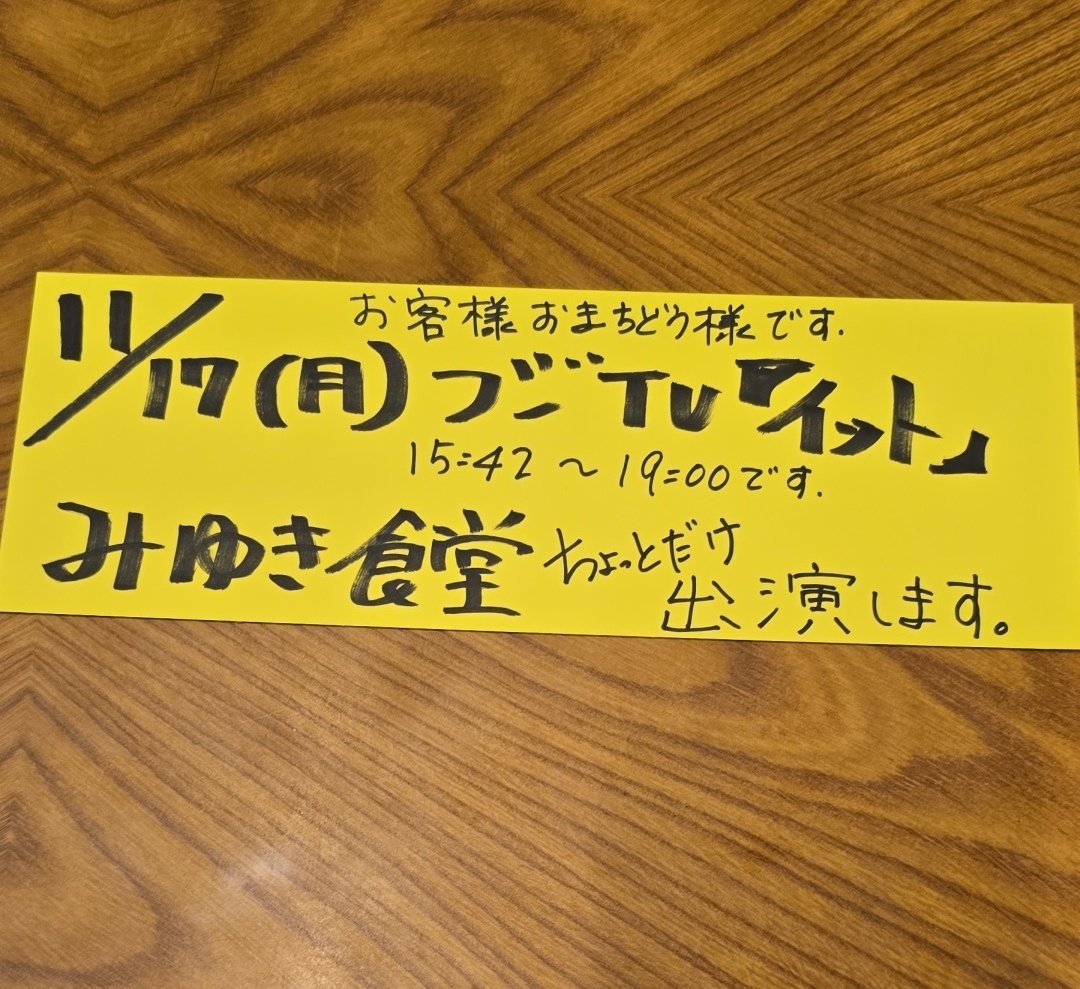 お客様おまちどう様です.
11/17(月)フジTV『イット』
15:42 〜 19:00です.
みゆき食堂ちょっとだけ
出演します。